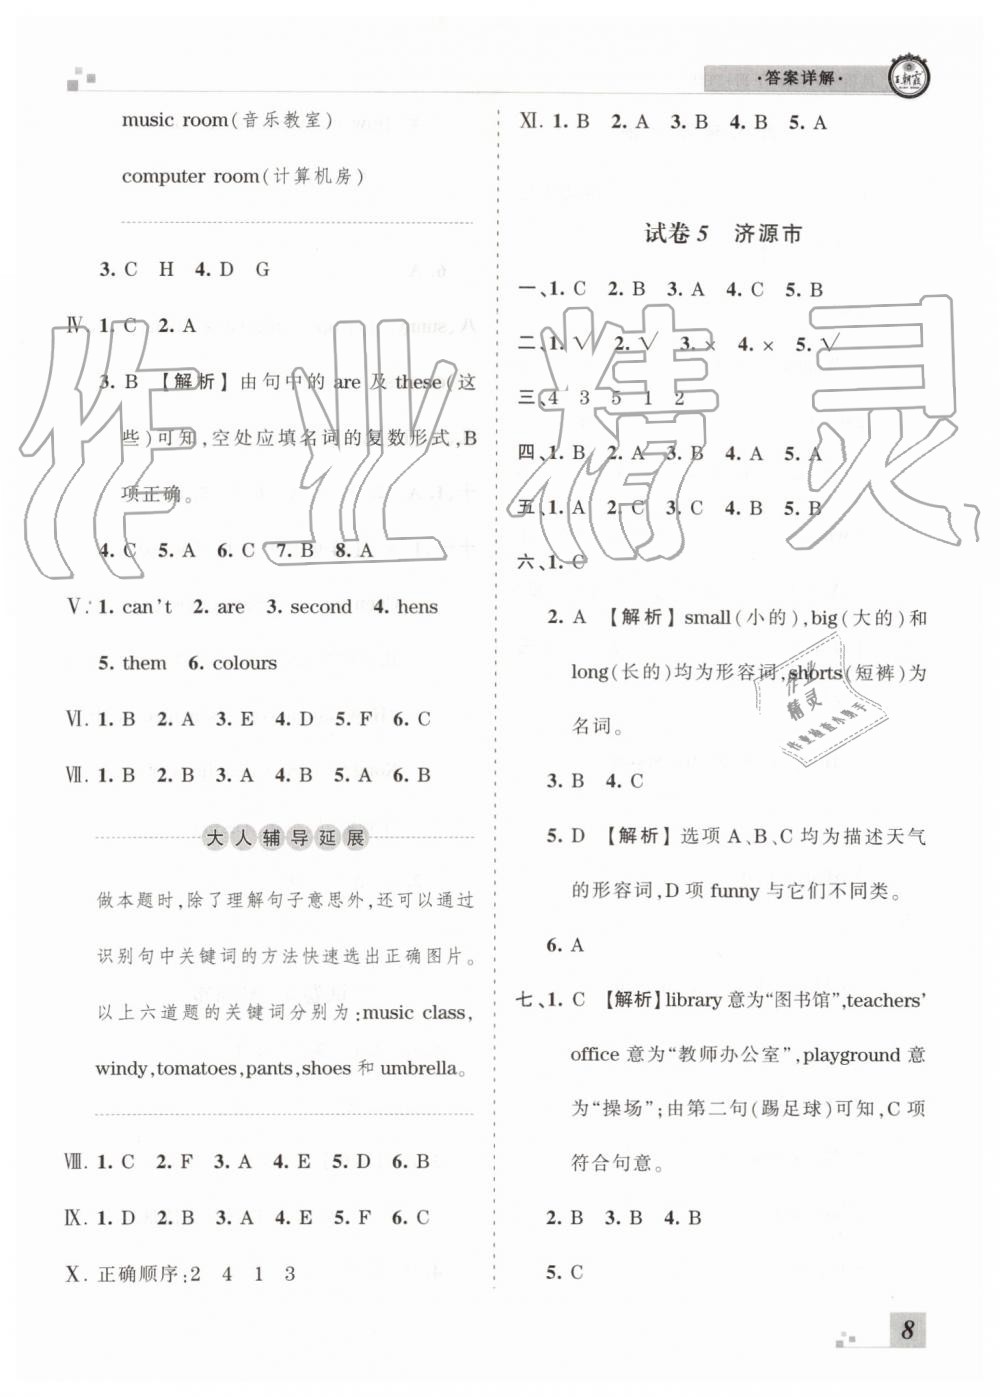 ·答案详解·
王朝霞
music room(音乐教室)
computer room(计算机房)
3. C H 4. D G
Ⅳ. 1. C 2. A
3. B 【解析】由句中的 are 及 these(这
些)可知,空处应填名词的复数形式,B
项正确。
4. C 5. A 6. C 7. B 8. A
Ⅴ. 1. can't 2. are 3. second 4. hens
5. them 6. colours
Ⅵ. 1. B 2. A 3. E 4. D 5. F 6. C
Ⅶ. 1. B 2. B 3. A 4. B 5. A 6. B
大人辅导延展
做本题时,除了理解句子意思外,还可以通过
识别句中关键词的方法快速选出正确图片。
以上六道题的关键词分别为:music class,
windy,tomatoes,pants,shoes 和 umbrella。
Ⅷ. 1. C 2. F 3. A 4. E 5. D 6. B
Ⅸ. 1. D 2. B 3. A 4. E 5. F 6. C
Ⅹ. 正确顺序:2 4 1 3
Ⅺ. 1. B 2. A 3. B 4. B 5. A
试卷 5 济源市
一、1. C 2. B 3. A 4. C 5. B
二、1. √ 2. √ 3. × 4. × 5. √
三、4 3 5 1 2
四、1. B 2. A 3. B 4. A 5. A
五、1. A 2. C 3. C 4. B 5. B
六、1. C
2. A 【解析】small(小的),big(大的)和
long(长的)均为形容词,shorts(短裤)为
名词。
3. B 4. C
5. D 【解析】选项 A、B、C 均为描述天气
的形容词,D 项 funny 与它们不同类。
6. A
七、1. C 【解析】library 意为“图书馆”,teachers'
office 意为“教师办公室”,playground 意
为“操场”;由第二句(踢足球)可知,C 项
符合句意。
2. B 3. B 4. B
5. C
8
作业精灵
作业
精灵
作业检查小助手